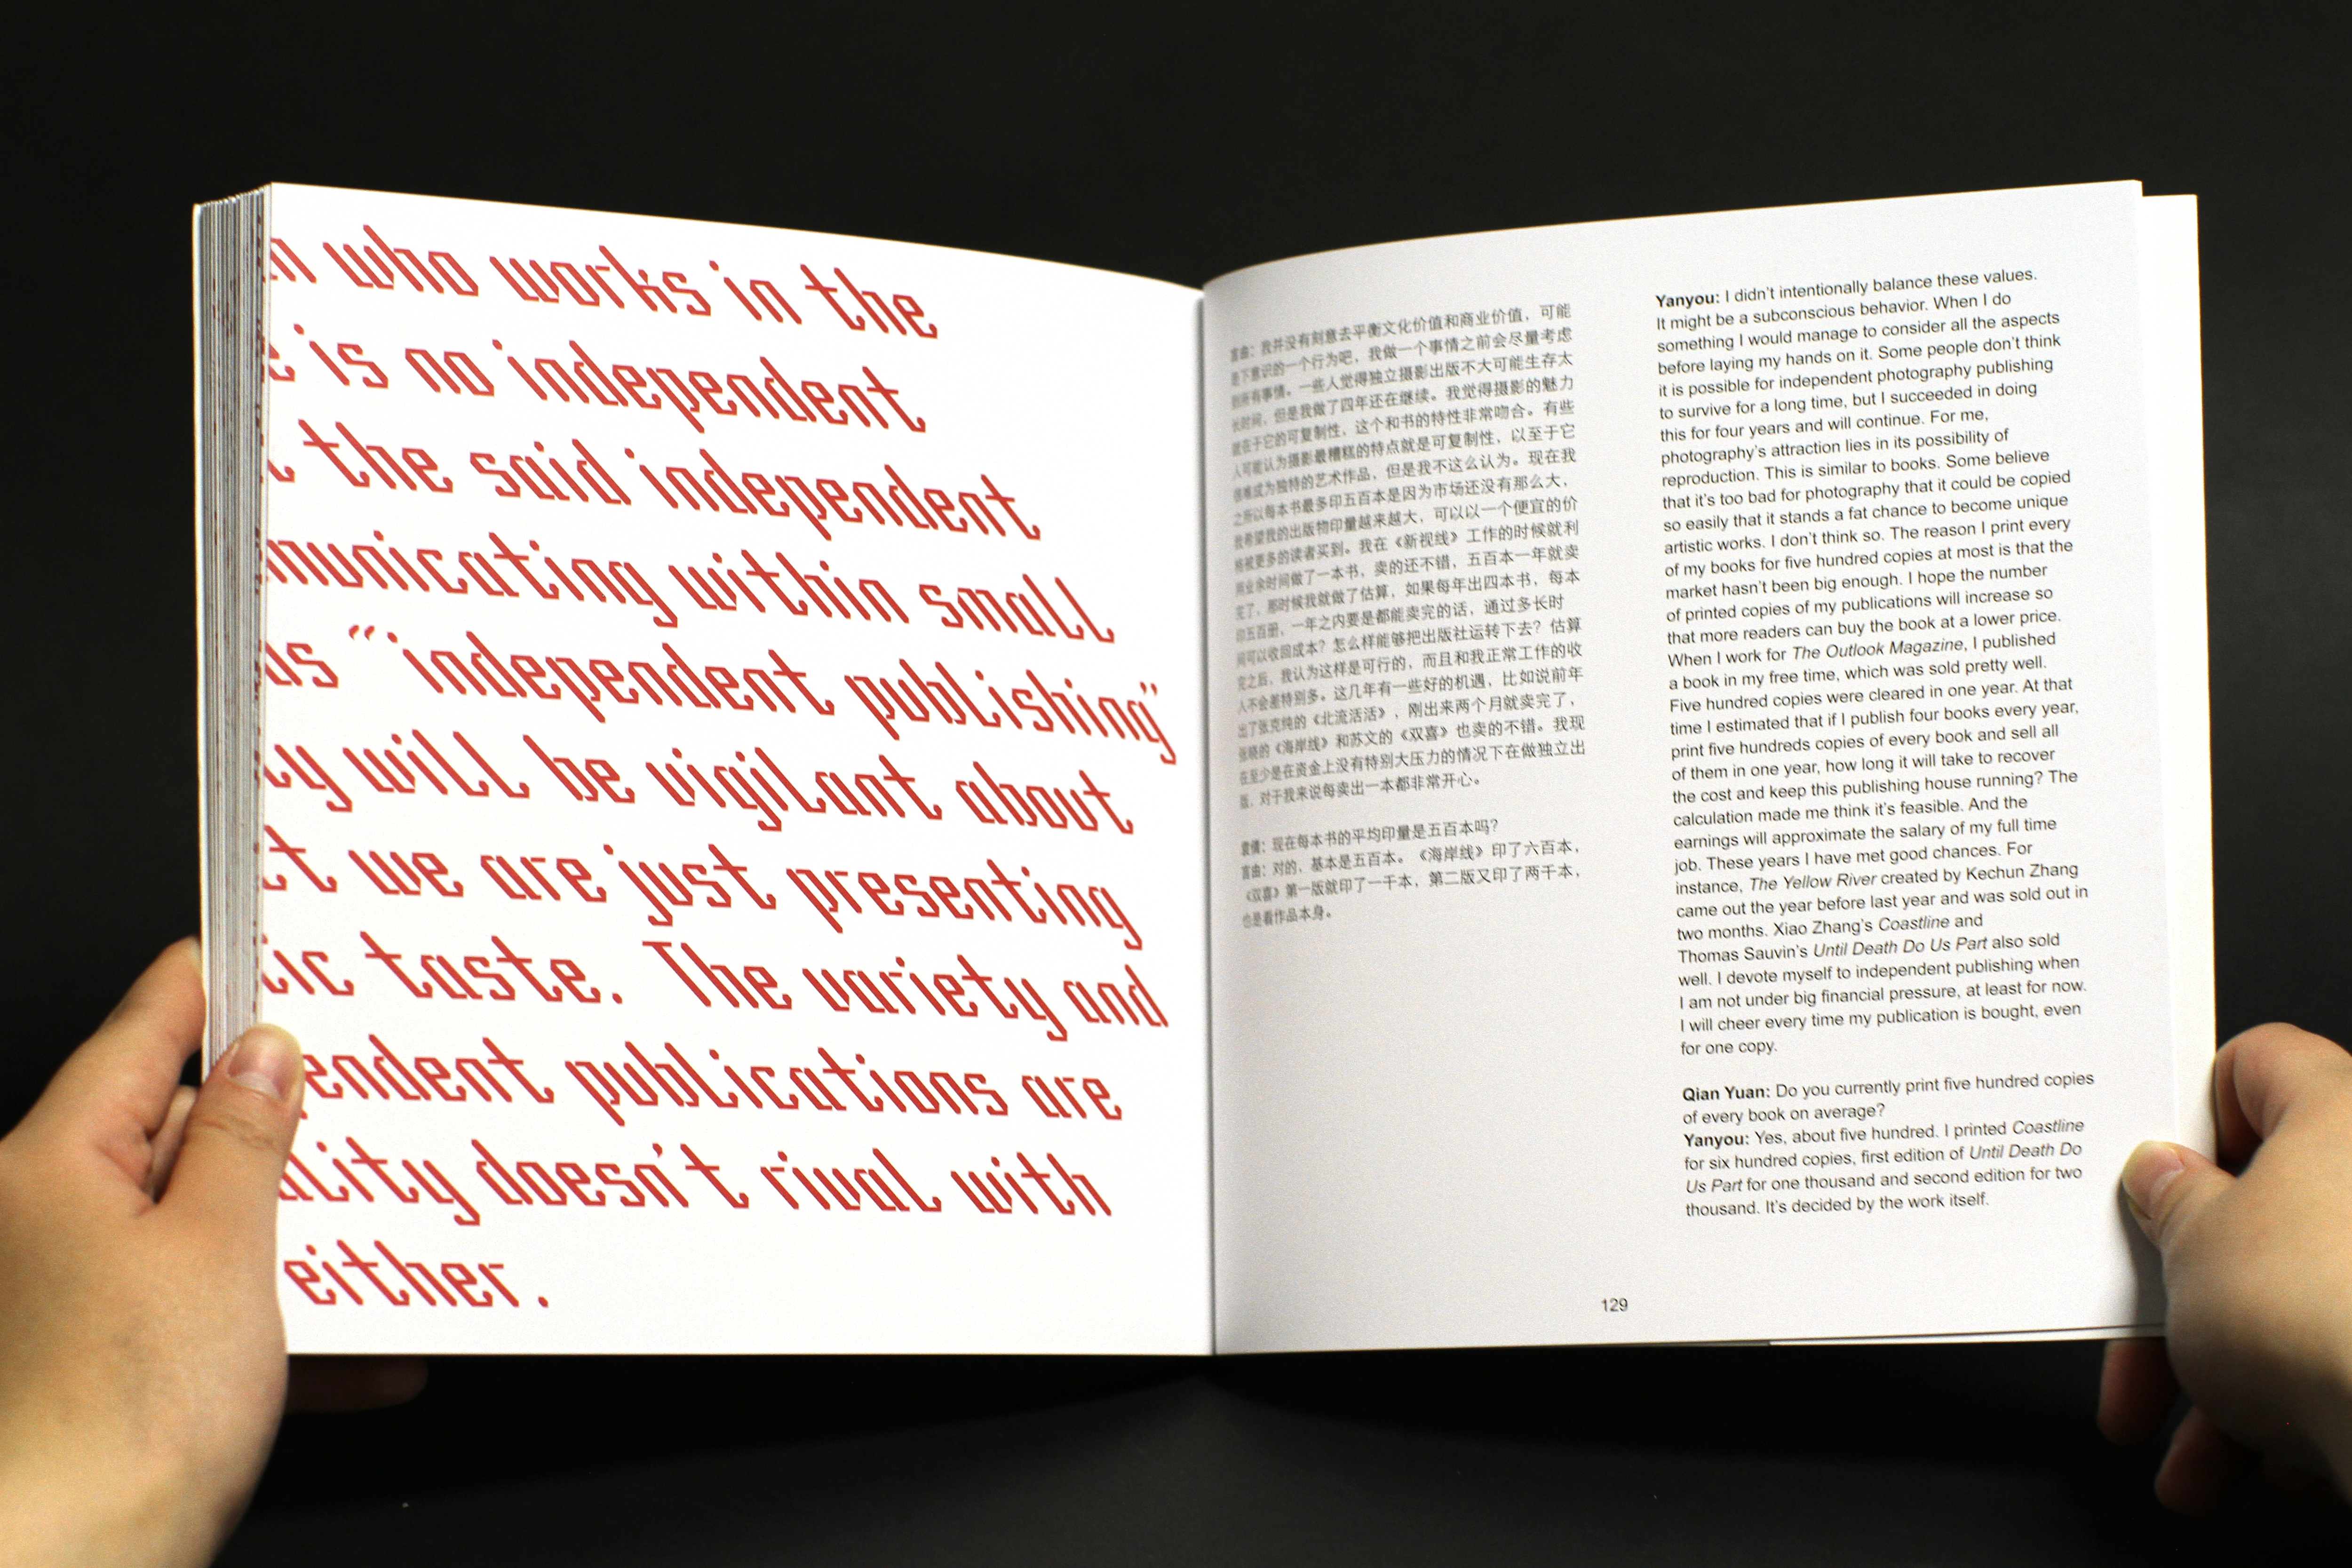 who works in the
is no independent
the said independent
municating within small
as “independent publishing”
will be vigilant about
we are just presenting
tic taste. The variety and
pendent publications are
ality doesn't rival with
either.
言由：我并没有刻意去平衡文化价值和商业价值，可能
是下意识的一个行为吧，我做一个事情之前会尽量考虑
到所有事情。一些人觉得独立摄影出版不大可能生存太
长时间，但是我做了四年还在继续。我觉得摄影的魅力
就在于它的可复制性，这个和书的特性非常吻合。有些
人可能认为摄影最糟糕的特点就是可复制性，以至于它
很难成为独特的艺术作品，但是我不这么认为。现在我
之所以每本书最多印五百本是因为市场还没有那么大，
我希望我的出版物印量越来越大，可以以一个便宜的价
格被更多的读者买到。我在《新视线》工作的时候就利
用业余时间做了一本书，卖的还不错，五百本一年就卖
完了，那时候我就做了估算，如果每年出四本书，每本
印五百册，一年之内要是都能卖完的话，通过多长时
间可以收回成本？怎么样能够把出版社运转下去？估算
完之后，我认为这样是可行的，而且和我正常工作的收
入不会差特别多。这几年有一些好的机遇，比如说前年
出了张克纯的《北流活活》，刚出来两个月就卖完了，
张晓的《海岸线》和苏文的《双喜》也卖的不错。我现
在至少是在资金上没有特别大压力的情况下在做独立出
版，对于我来说每卖出一本都非常开心。
袁倩：现在每本书的平均印量是五百本吗？
言由：对的，基本是五百本。《海岸线》印了六百本，
《双喜》第一版就印了一千本，第二版又印了两千本，
也是看作品本身。
Yanyou: I didn't intentionally balance these values.
It might be a subconscious behavior. When I do
something I would manage to consider all the aspects
before laying my hands on it. Some people don't think
it is possible for independent photography publishing
to survive for a long time, but I succeeded in doing
this for four years and will continue. For me,
photography's attraction lies in its possibility of
reproduction. This is similar to books. Some believe
that it's too bad for photography that it could be copied
so easily that it stands a fat chance to become unique
artistic works. I don't think so. The reason I print every
of my books for five hundred copies at most is that the
market hasn't been big enough. I hope the number
of printed copies of my publications will increase so
that more readers can buy the book at a lower price.
When I work for The Outlook Magazine, I published
a book in my free time, which was sold pretty well.
Five hundred copies were cleared in one year. At that
time I estimated that if I publish four books every year,
print five hundreds copies of every book and sell all
of them in one year, how long it will take to recover
the cost and keep this publishing house running? The
calculation made me think it's feasible. And the
earnings will approximate the salary of my full time
job. These years I have met good chances. For
instance, The Yellow River created by Kechun Zhang
came out the year before last year and was sold out in
two months. Xiao Zhang's Coastline and
Thomas Sauvin's Until Death Do Us Part also sold
well. I devote myself to independent publishing when
I am not under big financial pressure, at least for now.
I will cheer every time my publication is bought, even
for one copy.
Qian Yuan: Do you currently print five hundred copies
of every book on average?
Yanyou: Yes, about five hundred. I printed Coastline
for six hundred copies, first edition of Until Death Do
Us Part for one thousand and second edition for two
thousand. It's decided by the work itself.
129